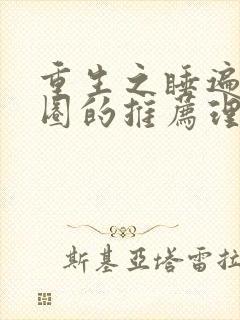 重生之睡遍
圈的推薦理
斯基亞塔雷拉